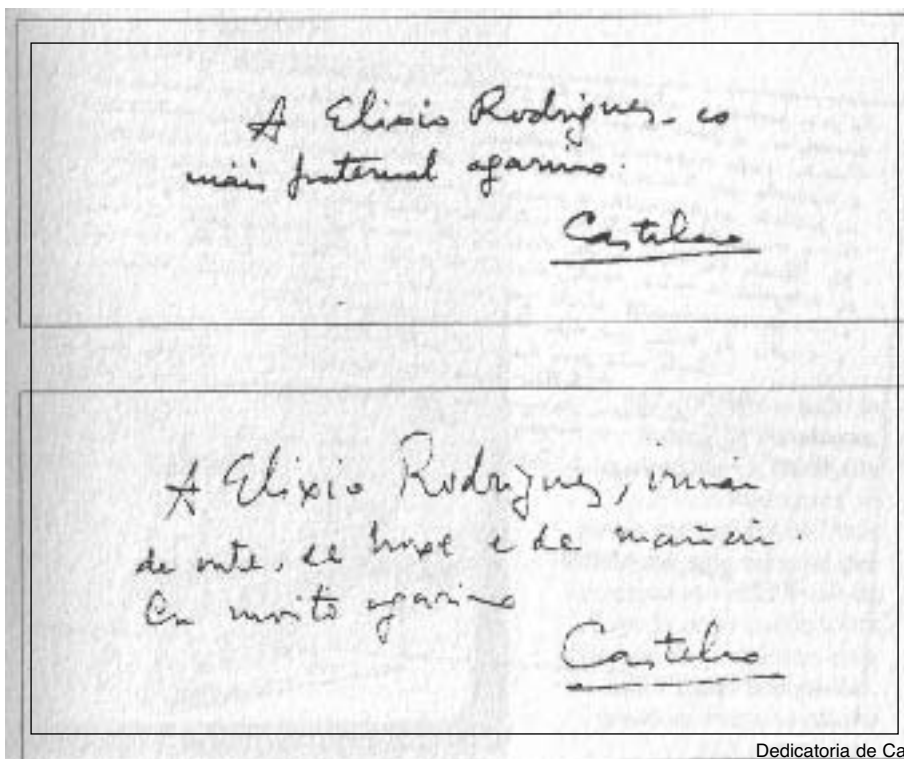 A Elixio Rodrigues - co
máis fraternal agarimo.
Castelao
A Elixio Rodrigues, irmán
de onte, de hoxe e de mañán.
Co moito agarimo
Castelao
Dedicatoria de Ca